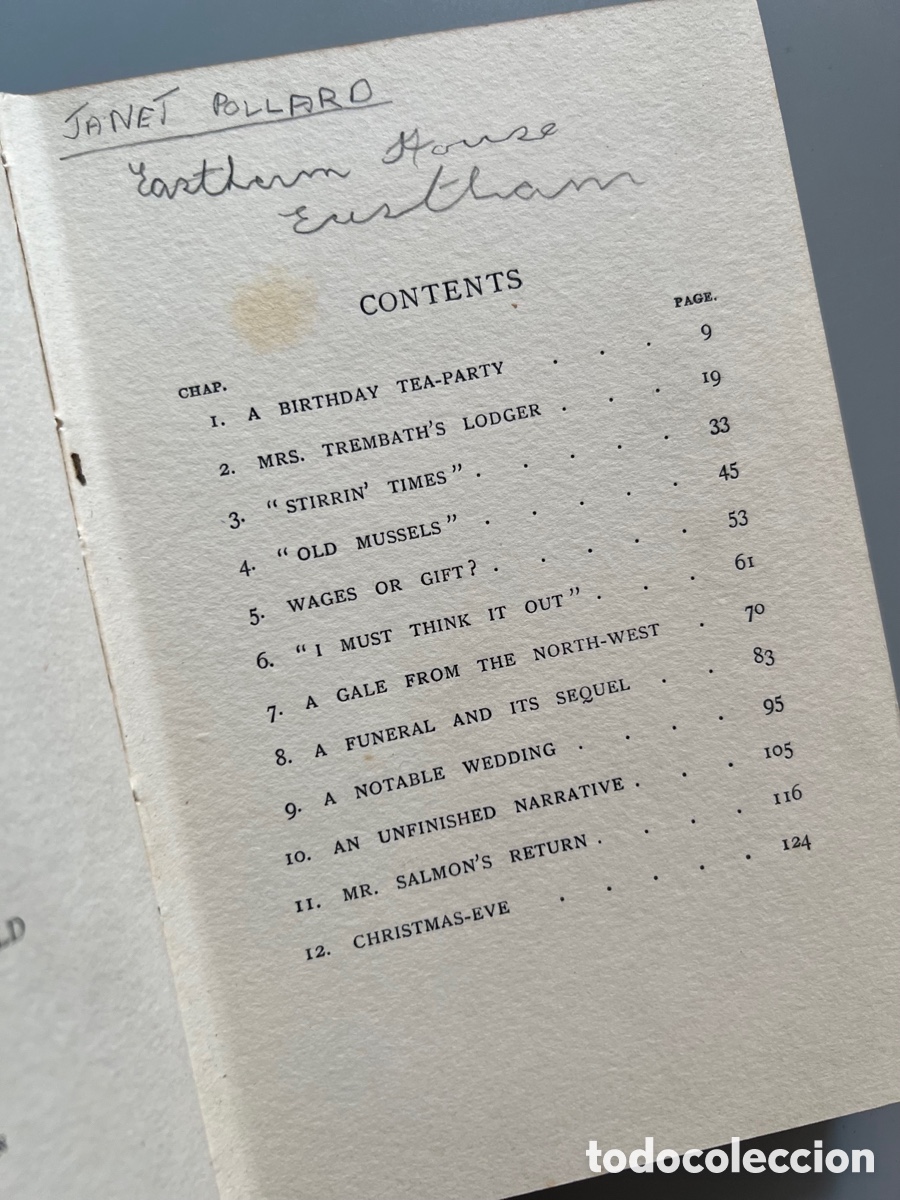 JANET POLLARD
Eastham House
Eastham
CONTENTS
CHAP. PAGE.
1. A BIRTHDAY TEA-PARTY . . . 9
2. MRS. TREMBATH'S LODGER . . 19
3. "STIRRIN' TIMES" . . . . . 33
4. "OLD MUSSELS" . . . . . 45
5. WAGES OR GIFT? . . . . . 53
6. "I MUST THINK IT OUT" . . . 61
7. A GALE FROM THE NORTH-WEST . 70
8. A FUNERAL AND ITS SEQUEL . . 83
9. A NOTABLE WEDDING . . . . 95
10. AN UNFINISHED NARRATIVE . . . 105
11. MR. SALMON'S RETURN . . . . 116
12. CHRISTMAS-EVE . . . . . 124
LD
todocoleccion